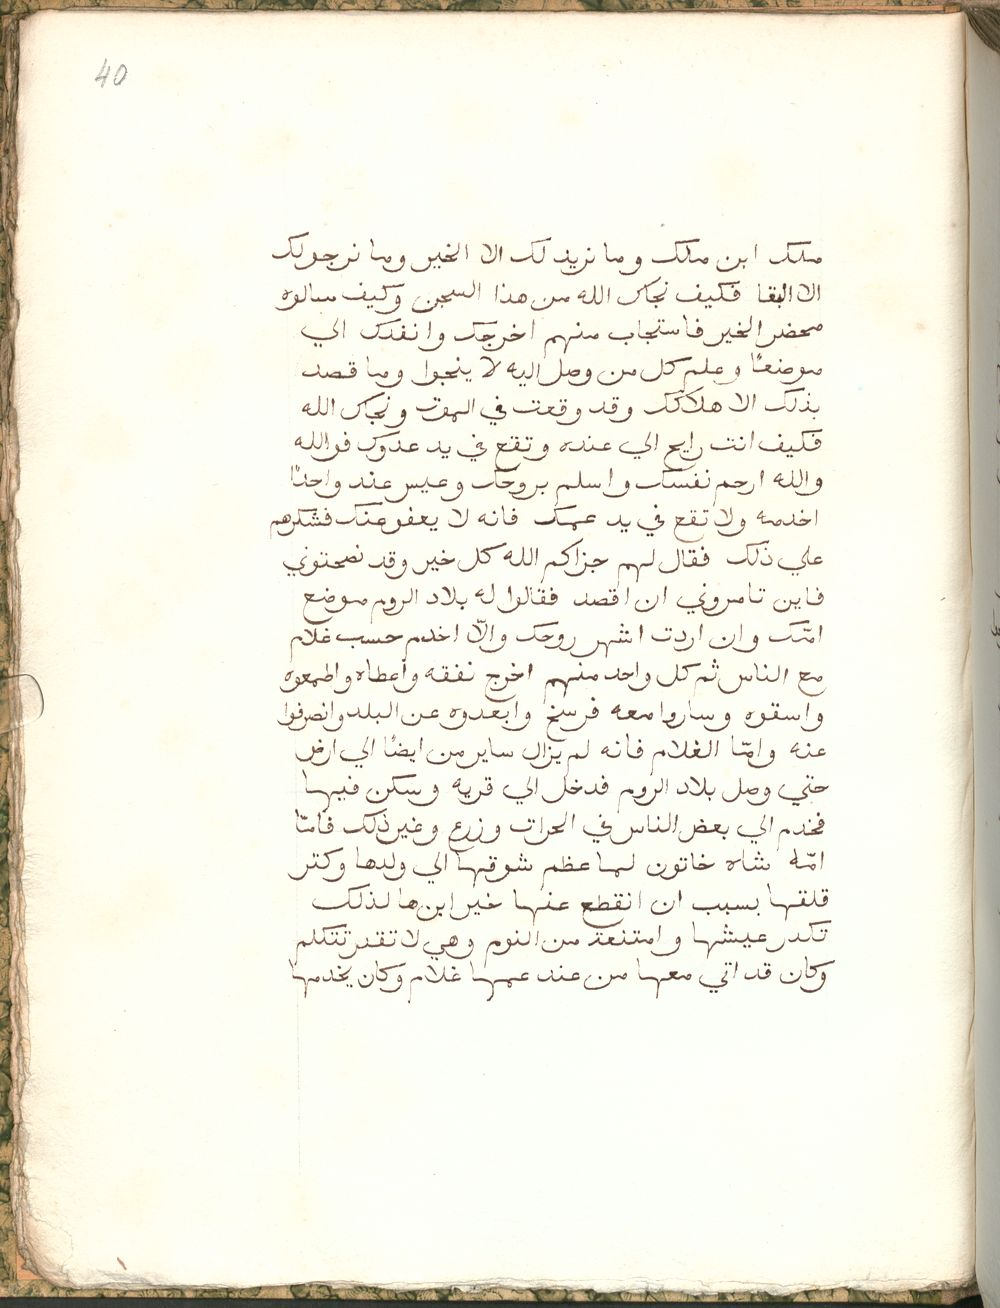 40
ملك ابن ملك وما نريد لك الا الخير وما نرجو لك
الا البقا فكيف نجاك الله من هذا السجن وكيف سالوه
محضر الخير فاستجاب منهم اخرجك وانفدك الي
موضعًا وعلم كل من وصل اليه لا ينجوا وما قصد
بذلك الا هلاكك وقد وقعت في الموت ونجاك الله
فكيف انت رايح الي عنده وتقع في يد عدوك فوالله
والله ارحم نفسك واسلم بروحك وعيس عند واحدًا
اخدمه ولا تقع في يد عمك فانه لا يعفو عنك فشكرهم
علي ذلك فقال لهم جزاكم الله كل خير وقد نصحتوني
فاين تامروني ان اقصد فقالوا له بلاد الروم موضع
امّك وان اردت اشهر روحك والّا اخدم حسب غلام
مع الناس ثم كل واحد منهم اخرج نفقه واعطاه واطمعوه
واسقوه وساروا معه فرسخ وابعدوه عن البلد وانصرفوا
عنه وامّا الغلام فانه لم يزال ساير من ايضًا الي ارض
حتي وصل بلاد الروم فدخل الي قريه وسكن فيها
فخدم الي بعض الناس في الحرات وزرع وغير ذلك فامّا
امّه شاه خاتون لما عظم شوقها الي ولدها وكتر
قلقها بسبب ان انقطع عنها خبر ابن ها لذلك
تكدر عيشها وامتنعة من النوم وهي لا تقدر تتكلم
وكان قد اتي معها من عند عمها غلام وكان يخدمها